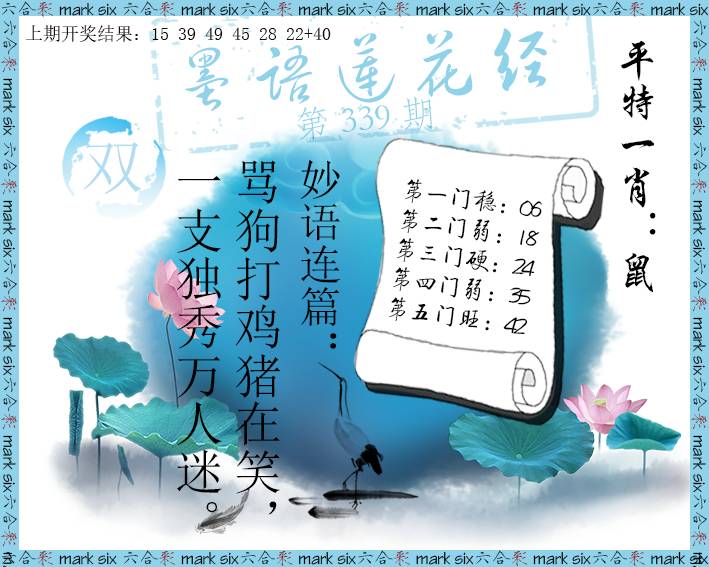 六合彩 mark six 六合彩 mark six 六合彩 mark six 六合彩 mark six 六合彩 mark six
上期开奖结果：15 39 49 45 28 22+40
墨语莲花经
第 339 期
双
平特一肖：鼠
妙语连篇：
骂狗打鸡猪在笑，
一支独秀万人迷。
第一门稳：06
第二门弱：18
第三门硬：24
第四门弱：35
第五门旺：42
mark six 六合彩 mark six 六合彩 mark six 六合彩 mark six 六合彩 mark six 六合彩